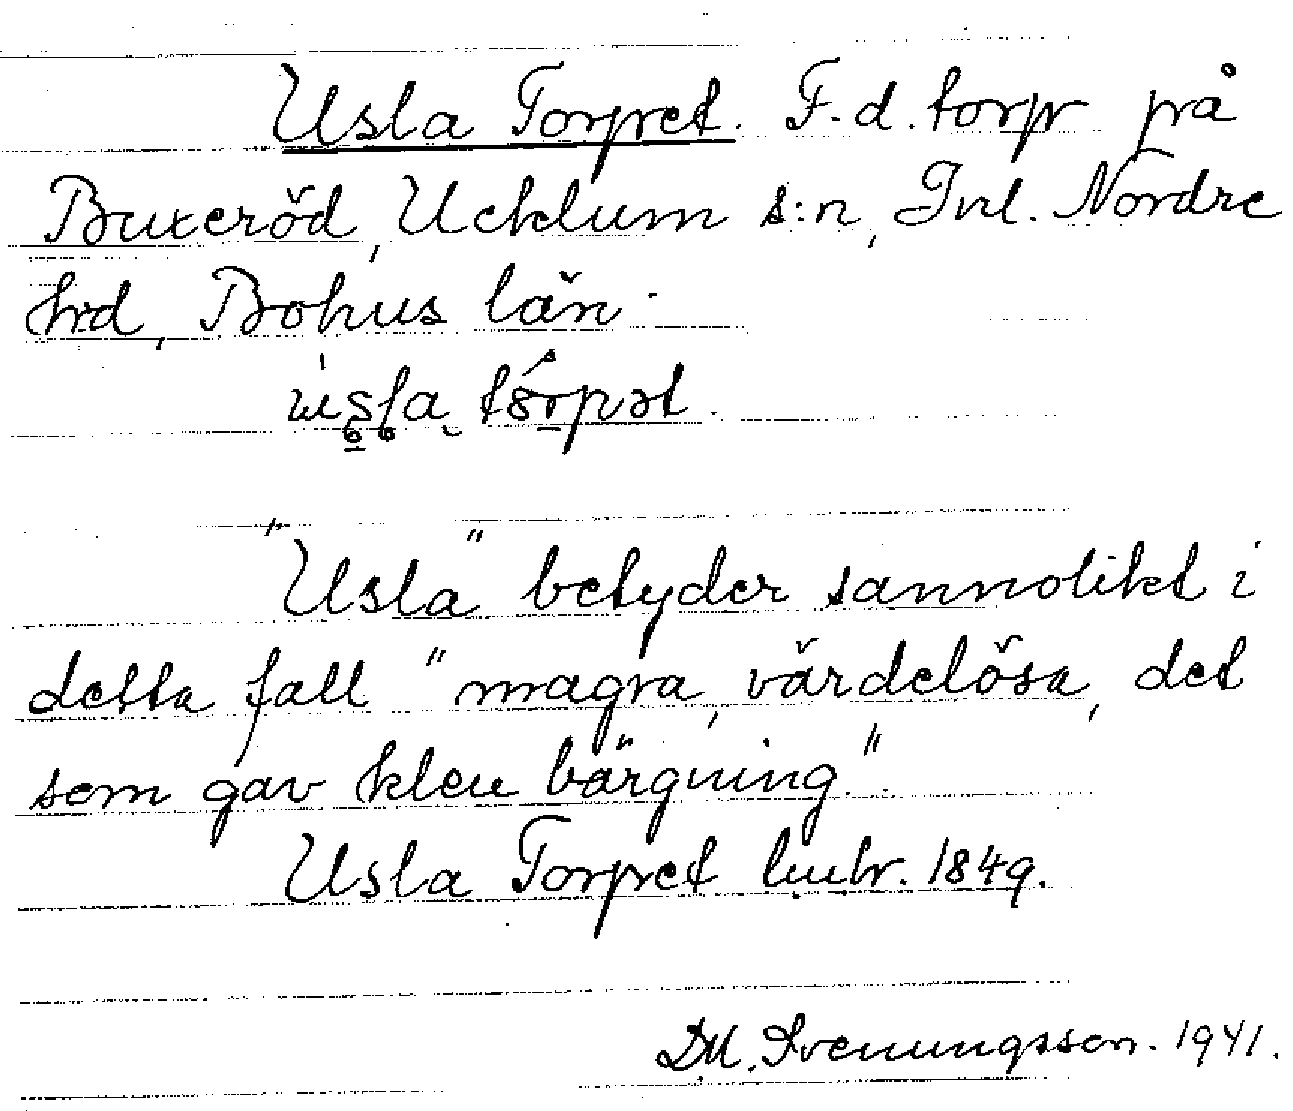 Usla Torpet. F.d. torp på
Buxeröd, Ucklum s:n, Inl. Nordre
hrd, Bohus län.
"Usla" betyder sannolikt i
detta fall "magra, värdelösa, det
som gav klen bärgning."
Usla Torpet husbr. 1849.
D.M. Svenungsson. 1941.